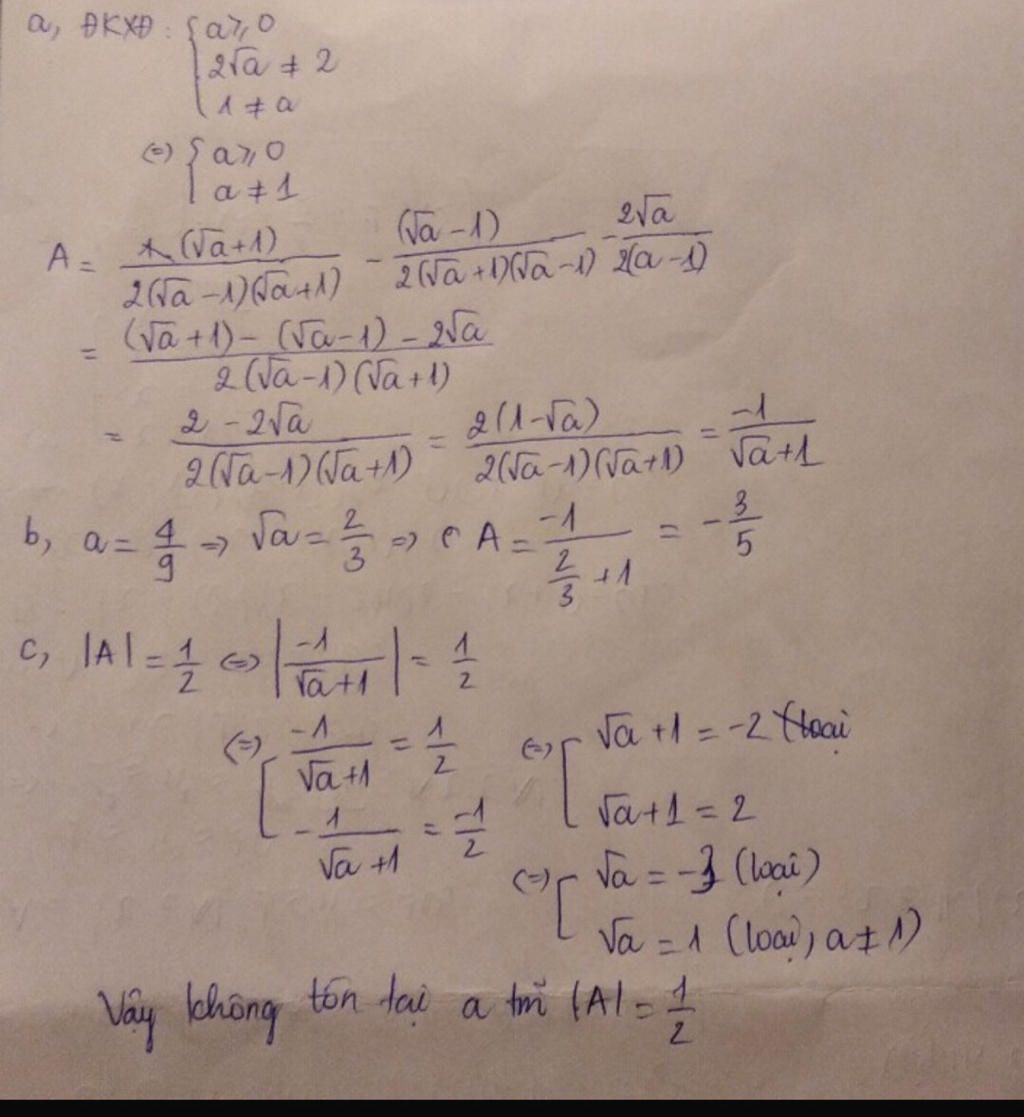 a, ĐKXĐ: { a ⩾ 0
2√a ≠ 2
1 ≠ a
(=) { a ⩾ 0
a ≠ 1
A = (√a+1) / 2(√a-1)(√a+1) - (√a-1) / 2(√a+1)(√a-1) - 2√a / 2(a-1)
= (√a+1) - (√a-1) - 2√a / 2(√a-1)(√a+1)
= 2-2√a / 2(√a-1)(√a+1) = 2(1-√a) / 2(√a-1)(√a+1) = -1 / √a+1
b, a = 4/9 => √a = 2/3 => A = -1 / 2/3 +1 = -3/5
c, |A| = 1/2 <=> |-1 / √a+1| = 1/2
(=) [ -1 / √a+1 = 1/2 (=) [ √a+1 = -2 (loại
-1 / √a+1 = -1/2 √a+1 = 2
(=) [ √a = -3 (loại)
√a = 1 (loại, a ≠ 1)
Vậy không tồn tại a tm |A| = 1/2